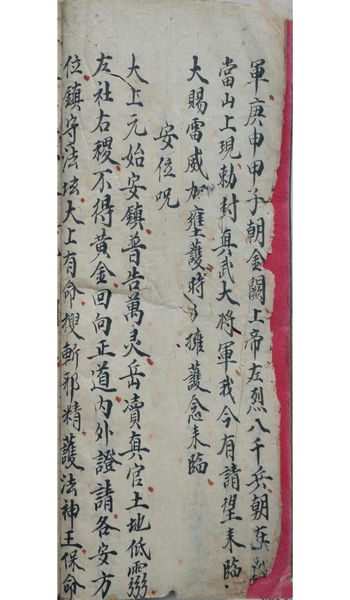 軍庚申甲子朝金闕上帝左烈八千兵朝在
當山上現勅封真武大将軍我今有請望来臨
大賜雷威加壅護時〻擁護念来臨
安位呪
大上元始安鎮普告萬灵岳凟真官土地低靈
左社右稷不得黄金回向正道内外證請各安方
位鎮守法坛大上有命搜斬邪精護法神王保命